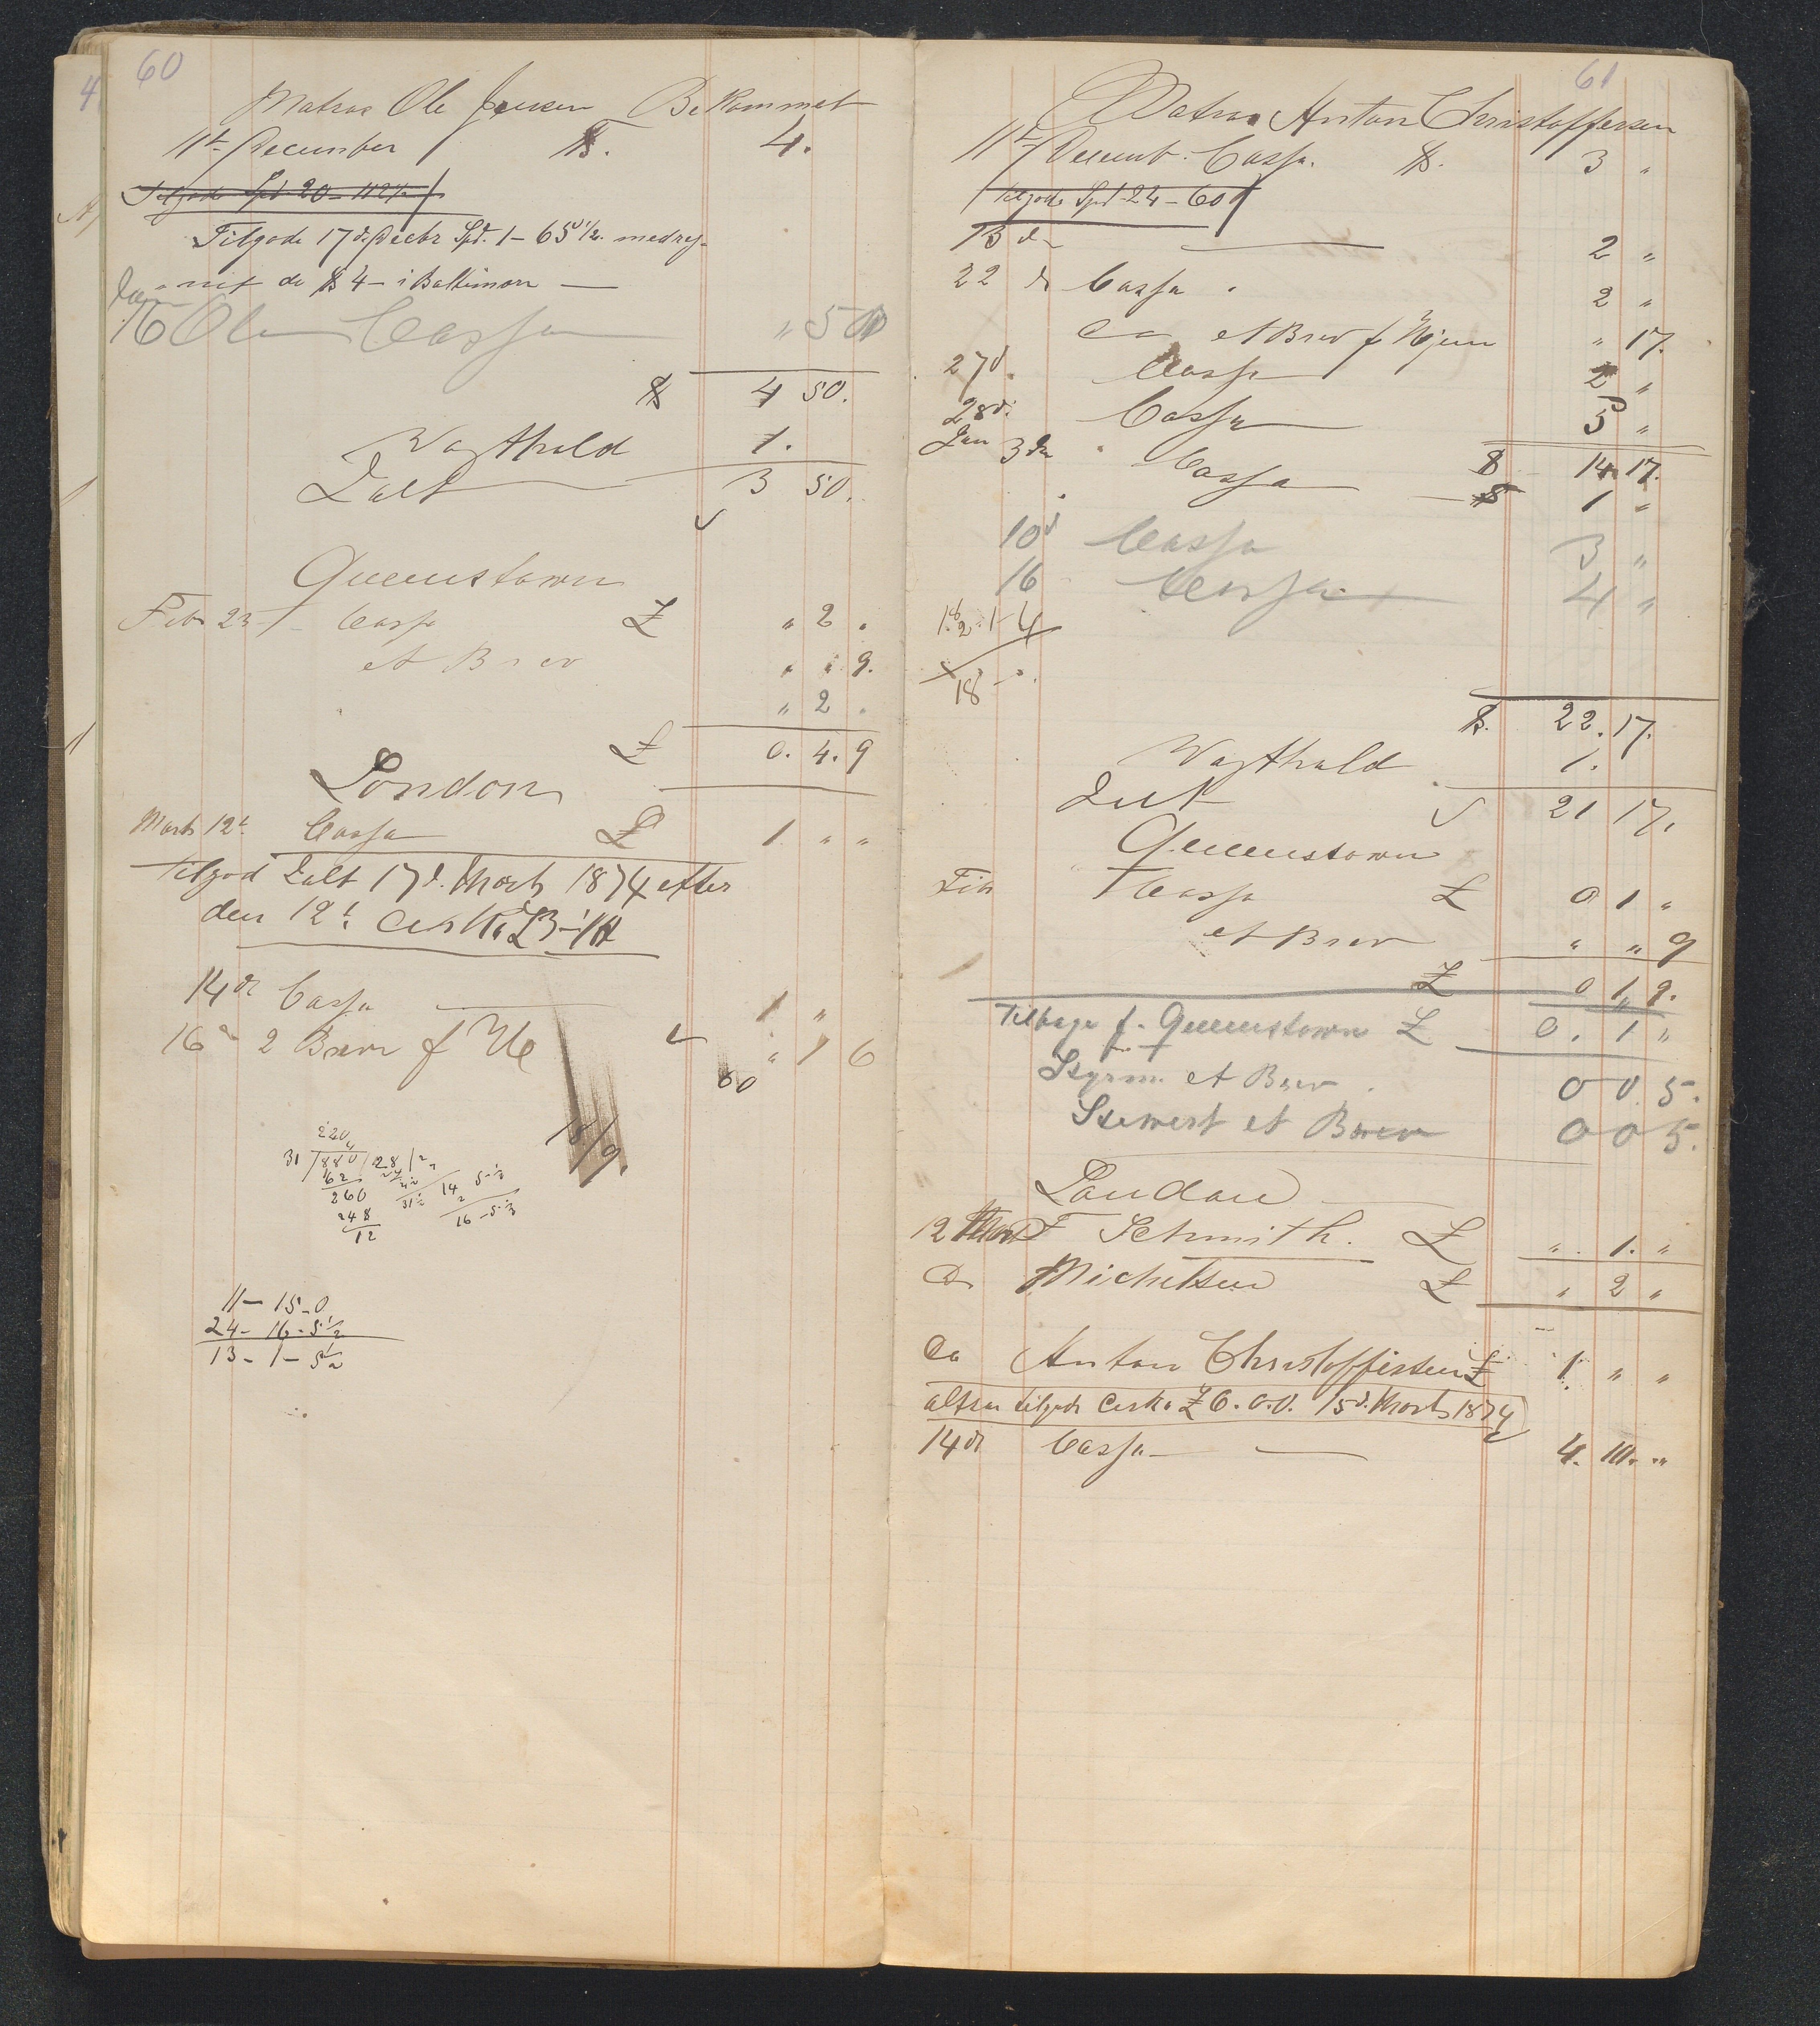 60
Matros Ole Jensen Bekommet
11te December $. 4.
Tilgode Spd 20 - 112
Tilgode 17 d. Decbr Spd. 1 - 65 1/2. medreg-
nit de $ 4 - i Baltimore —
Jan
16 Ole Cassa " 50
$ 4 50.
Vagthold 1.
Ialt 3 50.
Queenstown
Feb 23 Cassa £ " 2 "
et Brev " " 9.
" 2 "
£ 0. 4. 9
London
Marts 12t Cassa £ 1 " "
Tilgod Ialt 17 d. Marts 1874 efter
den 12t. Cirka £3-
14de Cassa 1 "
16 d 2 Breve f " 1 6
60
18/9.
220
4
31 / 880 / 28 / 2
62
260
248
12
14 5 1/2
2
16 - 5 1/2
11 - 15 - 0
24 - 16 - 5 1/2
13 - 1 - 5 1/2
61
Matros Anton Christoffersen
11te Decemb. Cassa. $. 3 "
Tilgode Spd 24 - 60
13 d — 2 "
22 d Cassa 2 "
Do et Brev f Hjem " 17.
27 d. Cassa 2 "
28 d. Cassa 5 "
$ 14. 17.
Jan 3 de Cassa $ 1 "
10 d Cassa 3 "
16 Cassa 4 "
18
$. 22. 17.
Vagthold 1.
Ialt 21 17.
Queenstown
Feb Cassa £ 0 1 "
et Brev " " 9
£ 0 1 9.
Tilbage f. Queenstown £ 0. 1 "
Styrm. et Brev 0 0 5.
Stewert et Brev 0 0 5.
London
12 Marts F Schmith. £ " 1. "
Do Michelsen £ " 2 "
Do Anton Christoffersen £ 1 " "
altsaa tilgode Cirka £ 6. 0. 0. 15 d. Marts 1874
14 d Cassa — 4. 10. "